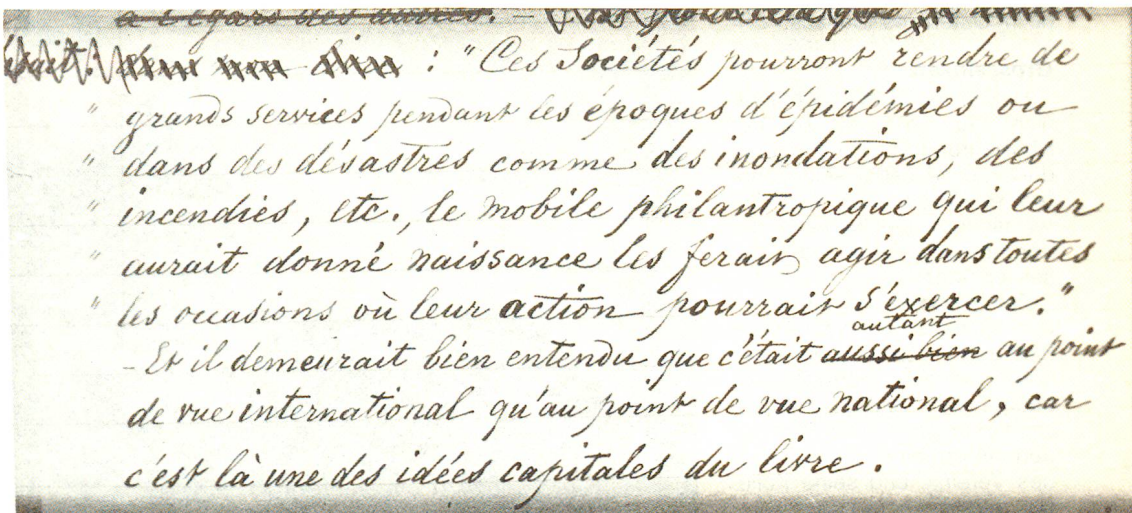 à l'égard des autres. —
: "Ces Sociétés pourront rendre de
" grands services pendant les époques d'épidémies ou
" dans des désastres comme des inondations, des
" incendies, etc., le mobile philantropique qui leur
" aurait donné naissance les ferait agir dans toutes
" les occasions où leur action pourrait s'exercer."
autant
– Et il demeurait bien entendu que c'était aussi bien au point
de vue international qu'au point de vue national, car
c'est là une des idées capitales du livre.